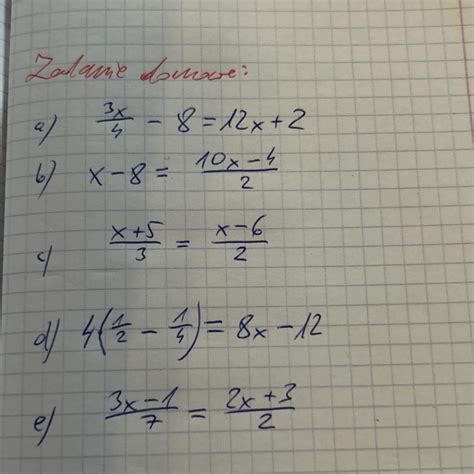 Zadanie domowe:
a) 3x/4 - 8 = 12x + 2
b) x - 8 = 10x - 4/2
c) x + 5/3 = x - 6/2
d) 4(1/2 - 1/4) = 8x - 12
e) 3x - 1/7 = 2x + 3/2